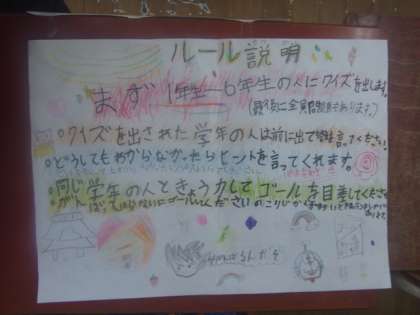 ルール説明
まず1年生〜6年生の人にクイズを出します。
(最後に全員問題もあります。)
○クイズを出された学年の人は前に出て答えを言ってください。
○どうしてもわからなかったらヒントを言ってくれます。
○同じ学年の人ときょう力してゴールを目差してください。
がんばって
がんばるんだぞ